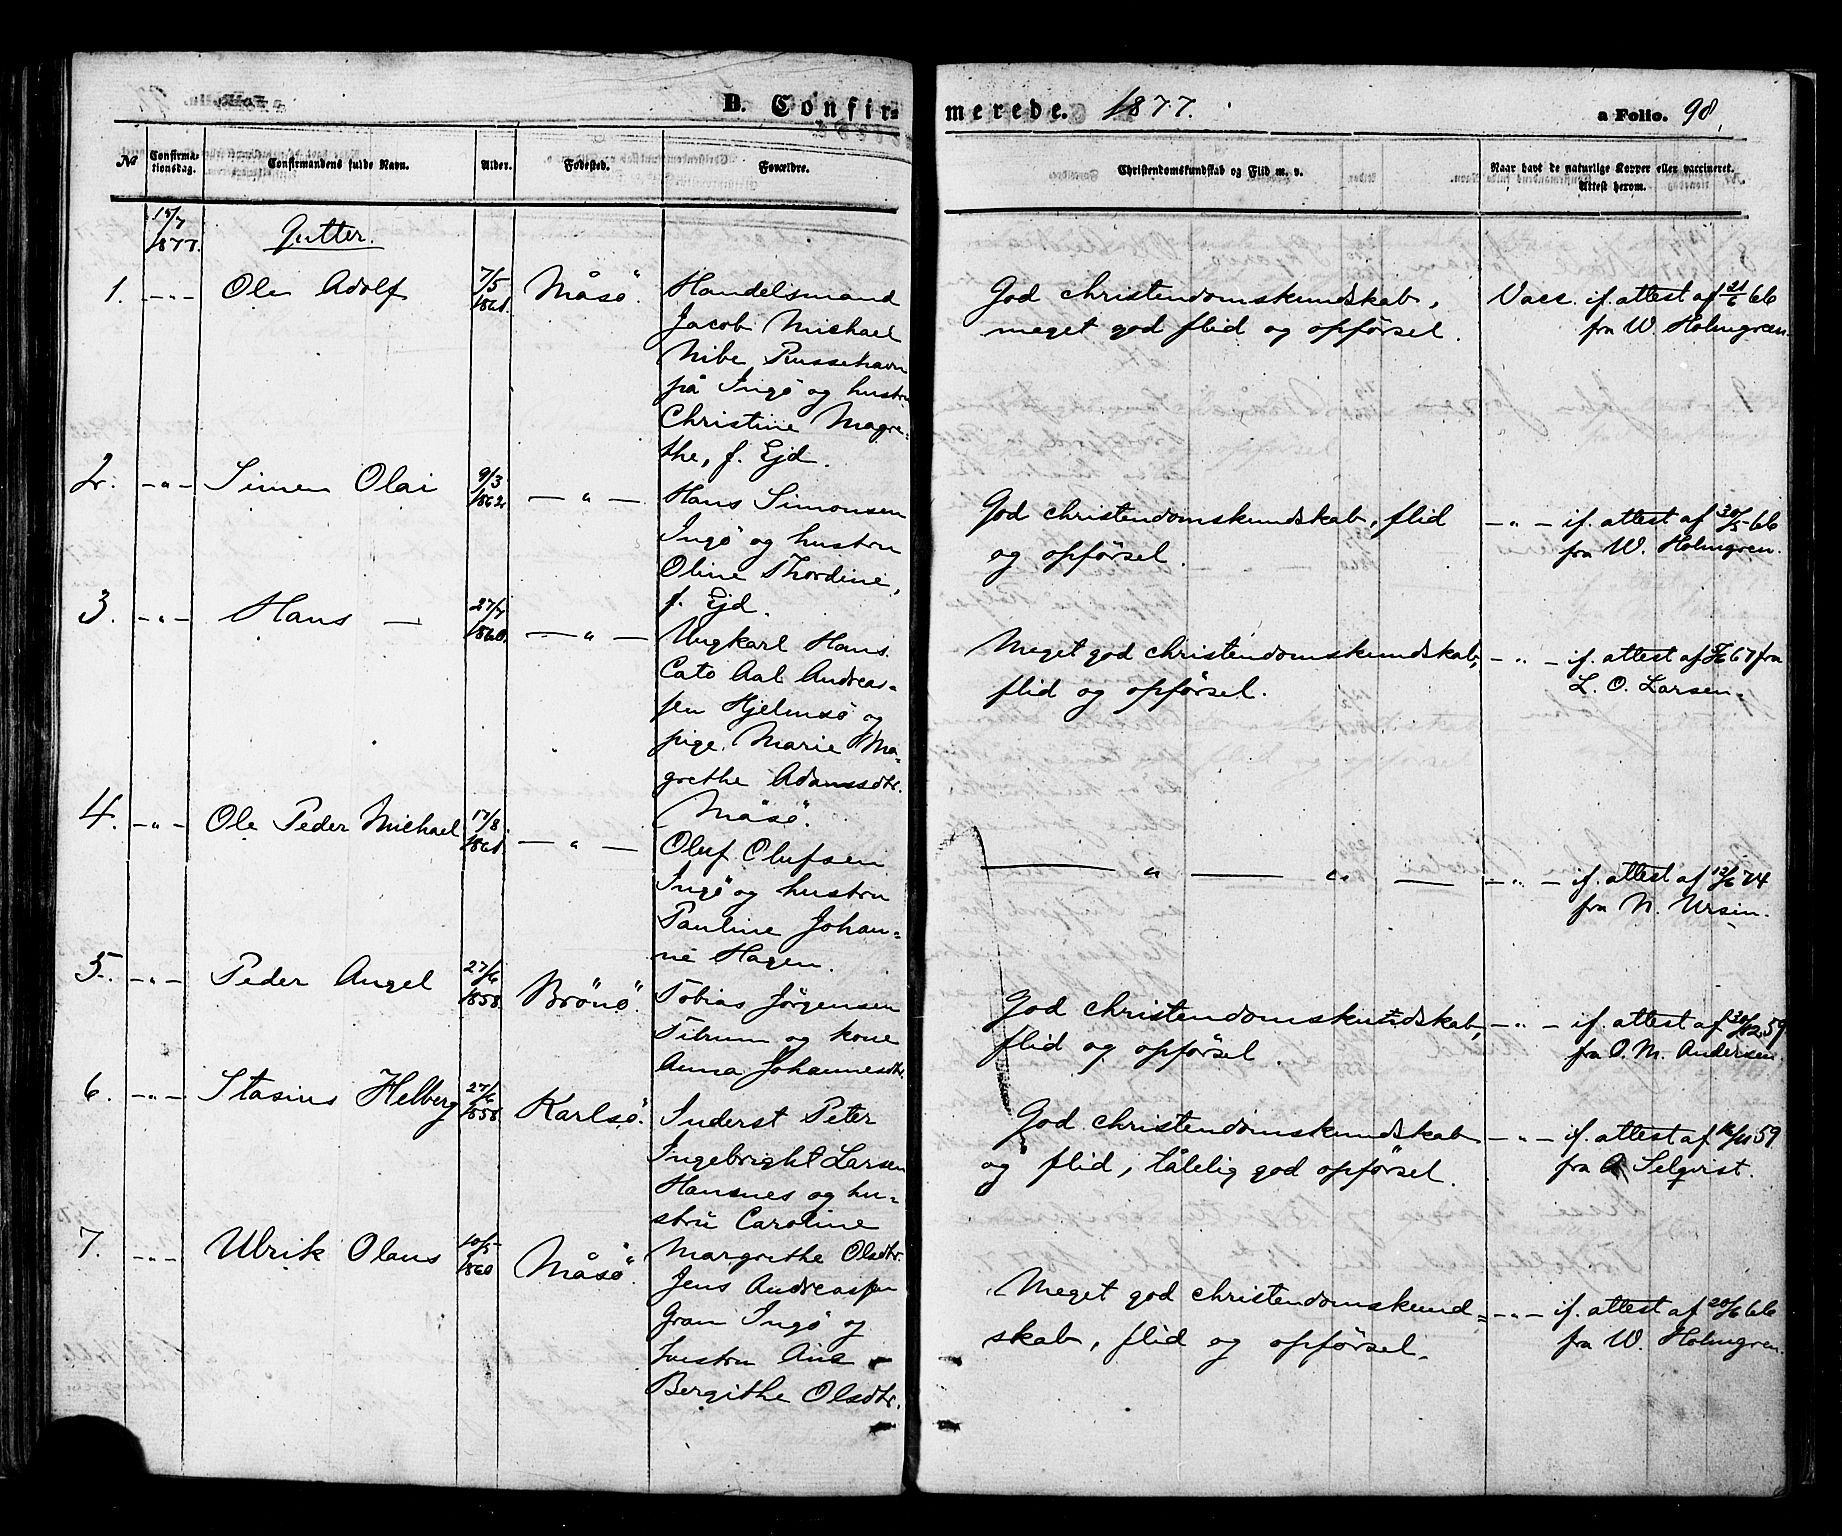 B. Confir=
merede. 1877.
a Folio. 98.
No
Confirma=
tionsdag.
Confirmandens fulde Navn.
Alder.
Fødested.
Forældre.
Christendomskundskab og Flid m. v.
Naar havt de naturlige Kopper eller vaccineret.
Attest herom.
15/7
1877.
Gutter.
1. —"— Ole Adolf
7/5
1861.
Måsö.
Handelsmand
Jacob Michael
Nibe Russehavn
på Ingö og hustru
Christine Magre-
the, f. Ejd.
God christendomskundskab,
meget god flid og opförsel.
Vacc. if. attest af 21/6 66
fra W. Holmgren.
2. —"— Simon Olai
9/3
1862.
—"—
Hans Simonsen
Ingö og hustru
Oline Thordine,
f. Ejd.
God christendomskundskab, flid
og opförsel.
—"— if. attest af 30/5 66
fra W. Holmgren.
3. —"— Hans —
27/7
1860.
—"—
Ungkarl Hans
Cato Aal Andreas-
sen Hjelmsö og
pige Marie Ma-
grethe Adamsdtr.
Måsö.
Meget god christendomskundskab,
flid og opförsel.
—"— if. attest af 67 fra
L. O. Larsen.
4. —"— Ole Peder Michael
17/8
1861.
—"—
Oluf Olufsen
Ingö og hustru
Pauline Johan=
ne Hagen.
— " — " —
—"— if. attest af 12/6 74
fra N. Ursin.
5. —"— Peder Angel
27/6
1858.
Brönö.
Tobias Jörgensen
Tilrum og kone
Anna Johannesdtr.
God christendomskundskab,
flid og opförsel.
—"— if. attest af 30/12 59
fra O. M. Andersen.
6. —"— Stasius Helberg
27/6
1858.
Karlsö.
Inderst Peter
Ingebright Larsen
Hansnes og hu=
stru Caroline
Margrethe Olsdtr.
God christendomskundskab
og flid, tålelig god opförsel.
—"— if. attest af 16/11 59
fra A Selqvist.
7. —"— Ulrik Olaus
10/5
1860
Måsö.
Jens Andreassen
Gran Ingö og
hustru Ane
Bergithe Olsdtr.
Meget god christendomskund=
skab, flid og opförsel.
—"— if. attest af 20/6 66
fra W. Holmgren.